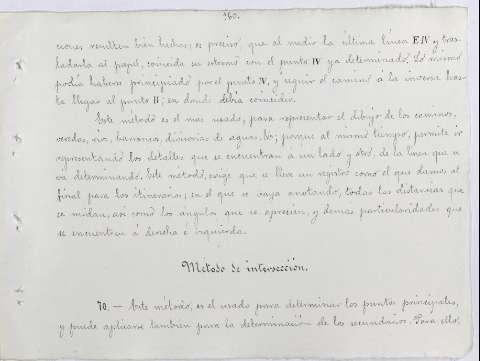 160.
ciones resulten bien hechas, es preciso, que al medir la última línea E.IV y tras-
ladarla al papel, coincida su estremo con el punto IV ya determinado. Lo mismo
podía haberse principiado por el punto IV, y seguir el camino á la inversa has-
ta llegar al punto II; en donde debía coincidir.
Este método es el mas usado, para representar el dibujo de los caminos,
veredas, rios, barrancos, divisorias de aguas, &; porque al mismo tiempo, permite ir
representando los detalles que se encuentran á un lado y otro, de la línea que se
va determinando. Este método, exige que se lleve un registro como el que damos al
final para los itinerarios; en el que se vaya anotando, todas las distancias que
se midan, asi como los angulos que se aprecien, y demas particularidades que
se encuentren á derecha é izquierda.
Metodo de intersección.
70. — Este método, es el usado para determinar los puntos principales,
y puede aplicarse tambien para la determinación de los secundarios. Para ello,